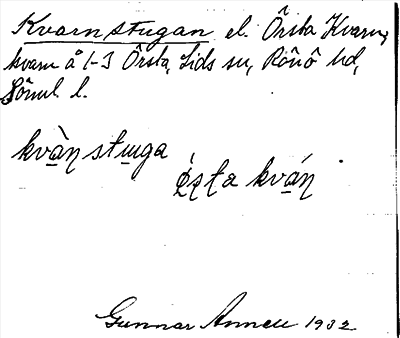 Kvarnstugan el. Örsta Kvarn,
kvarn å 1-3 Örsta, Lids sn, Rönö hd,
Söml l.
kvàṇ stuga
ö́ṣṭa kváṇ
Gunnar Annell 1932